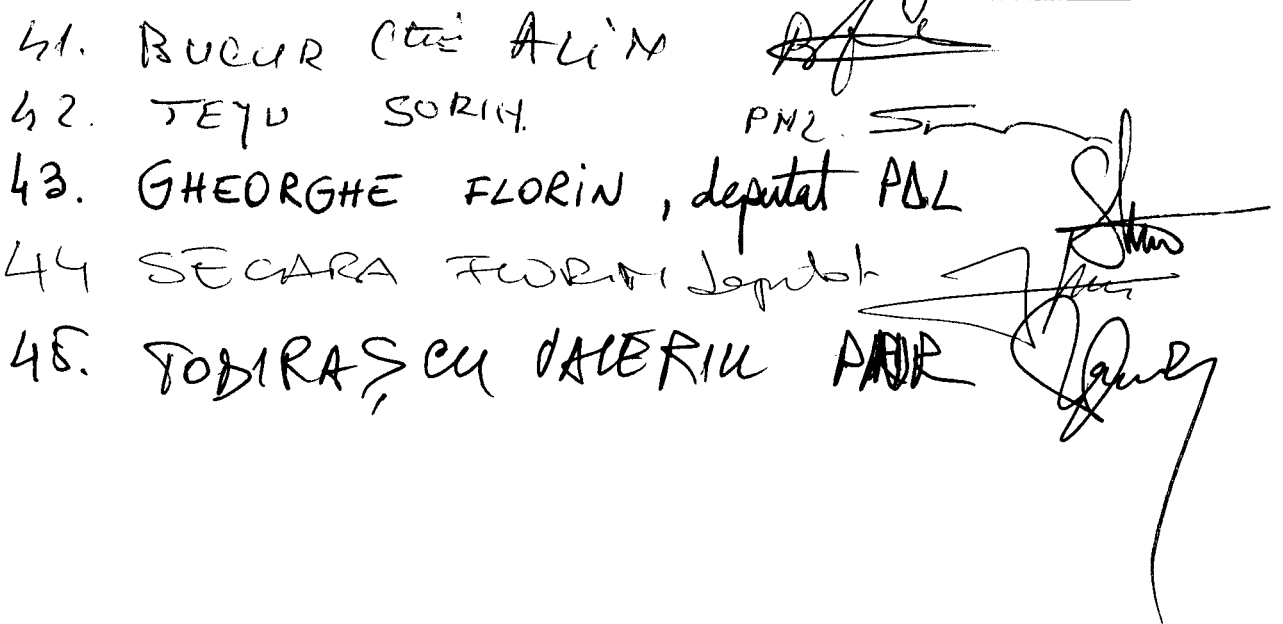 41. BUCUR C-TIN ALIN
42. TEJU SORIN. PNL.
43. GHEORGHE FLORIN, deputat PDL
44 SECARA FLORIN deputat
45. TOBIRAȘCU VALERIU